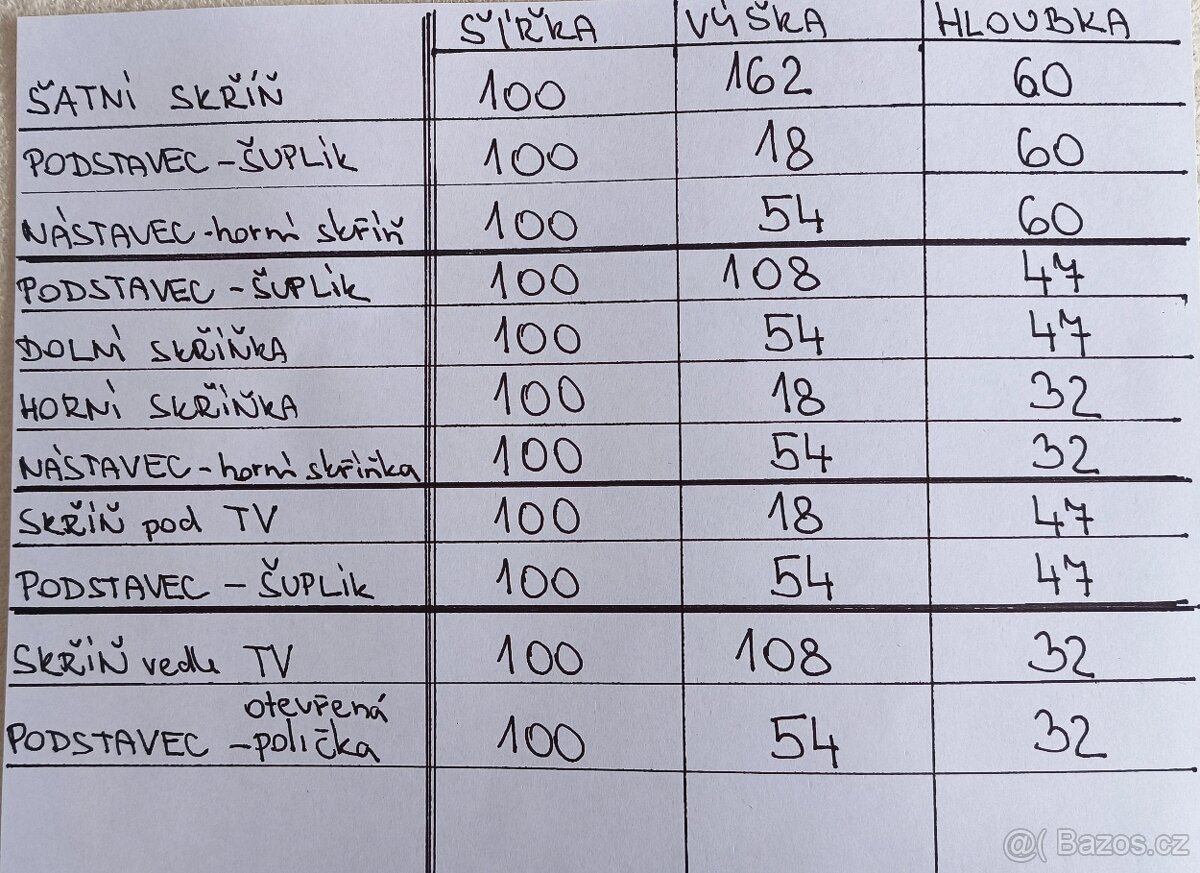 ŠÍŘKA VÝŠKA HLOUBKA
ŠATNÍ SKŘÍŇ 100 162 60
PODSTAVEC - ŠUPLÍK 100 18 60
NÁSTAVEC - horní skříň 100 54 60
PODSTAVEC - ŠUPLÍK 100 108 47
DOLNÍ SKŘÍŇKA 100 54 47
HORNÍ SKŘÍŇKA 100 18 32
NÁSTAVEC - horní skříňka 100 54 32
SKŘÍŇ pod TV 100 18 47
PODSTAVEC - ŠUPLÍK 100 54 47
SKŘÍŇ vedle TV 100 108 32
otevřená
PODSTAVEC - polička 100 54 32
@( Bazos.cz